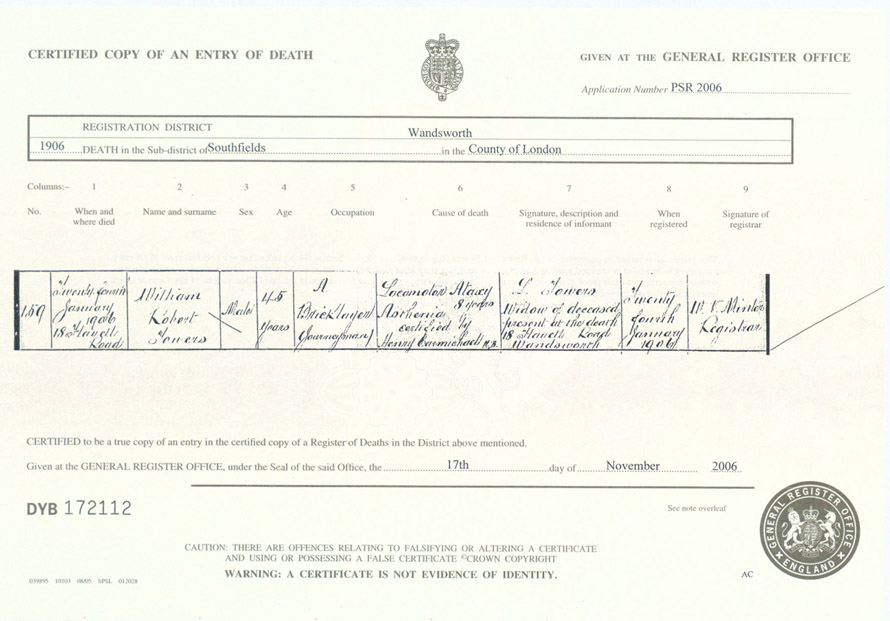 CERTIFIED COPY OF AN ENTRY OF DEATH
GIVEN AT THE GENERAL REGISTER OFFICE
Application Number PSR 2006
REGISTRATION DISTRICT Wandsworth
1906 DEATH in the Sub-district of Southfields in the County of London
Columns:- 1 2 3 4 5 6 7 8 9
No. When and where died Name and surname Sex Age Occupation Cause of death Signature, description and residence of informant When registered Signature of registrar
159
Twenty fourth
January
1906
18 Havell
Road
William
Robert
Towers
Male
45
years
A
Bricklayer
(Journeyman)
Locomotor Ataxy
8 years
Asthenia
certified by
Henry Carmichael M.B.
L. Towers
Widow of deceased
present at the death
18 Havell Road
Wandsworth
Twenty
fourth
January
1906
Registrar
CERTIFIED to be a true copy of an entry in the certified copy of a Register of Deaths in the District above mentioned.
Given at the GENERAL REGISTER OFFICE, under the Seal of the said Office, the 17th day of November 2006
DYB 172112
See note overleaf
GENERAL REGISTER OFFICE
ENGLAND
CAUTION: THERE ARE OFFENCES RELATING TO FALSIFYING OR ALTERING A CERTIFICATE
AND USING OR POSSESSING A FALSE CERTIFICATE ©CROWN COPYRIGHT
WARNING: A CERTIFICATE IS NOT EVIDENCE OF IDENTITY.
AC